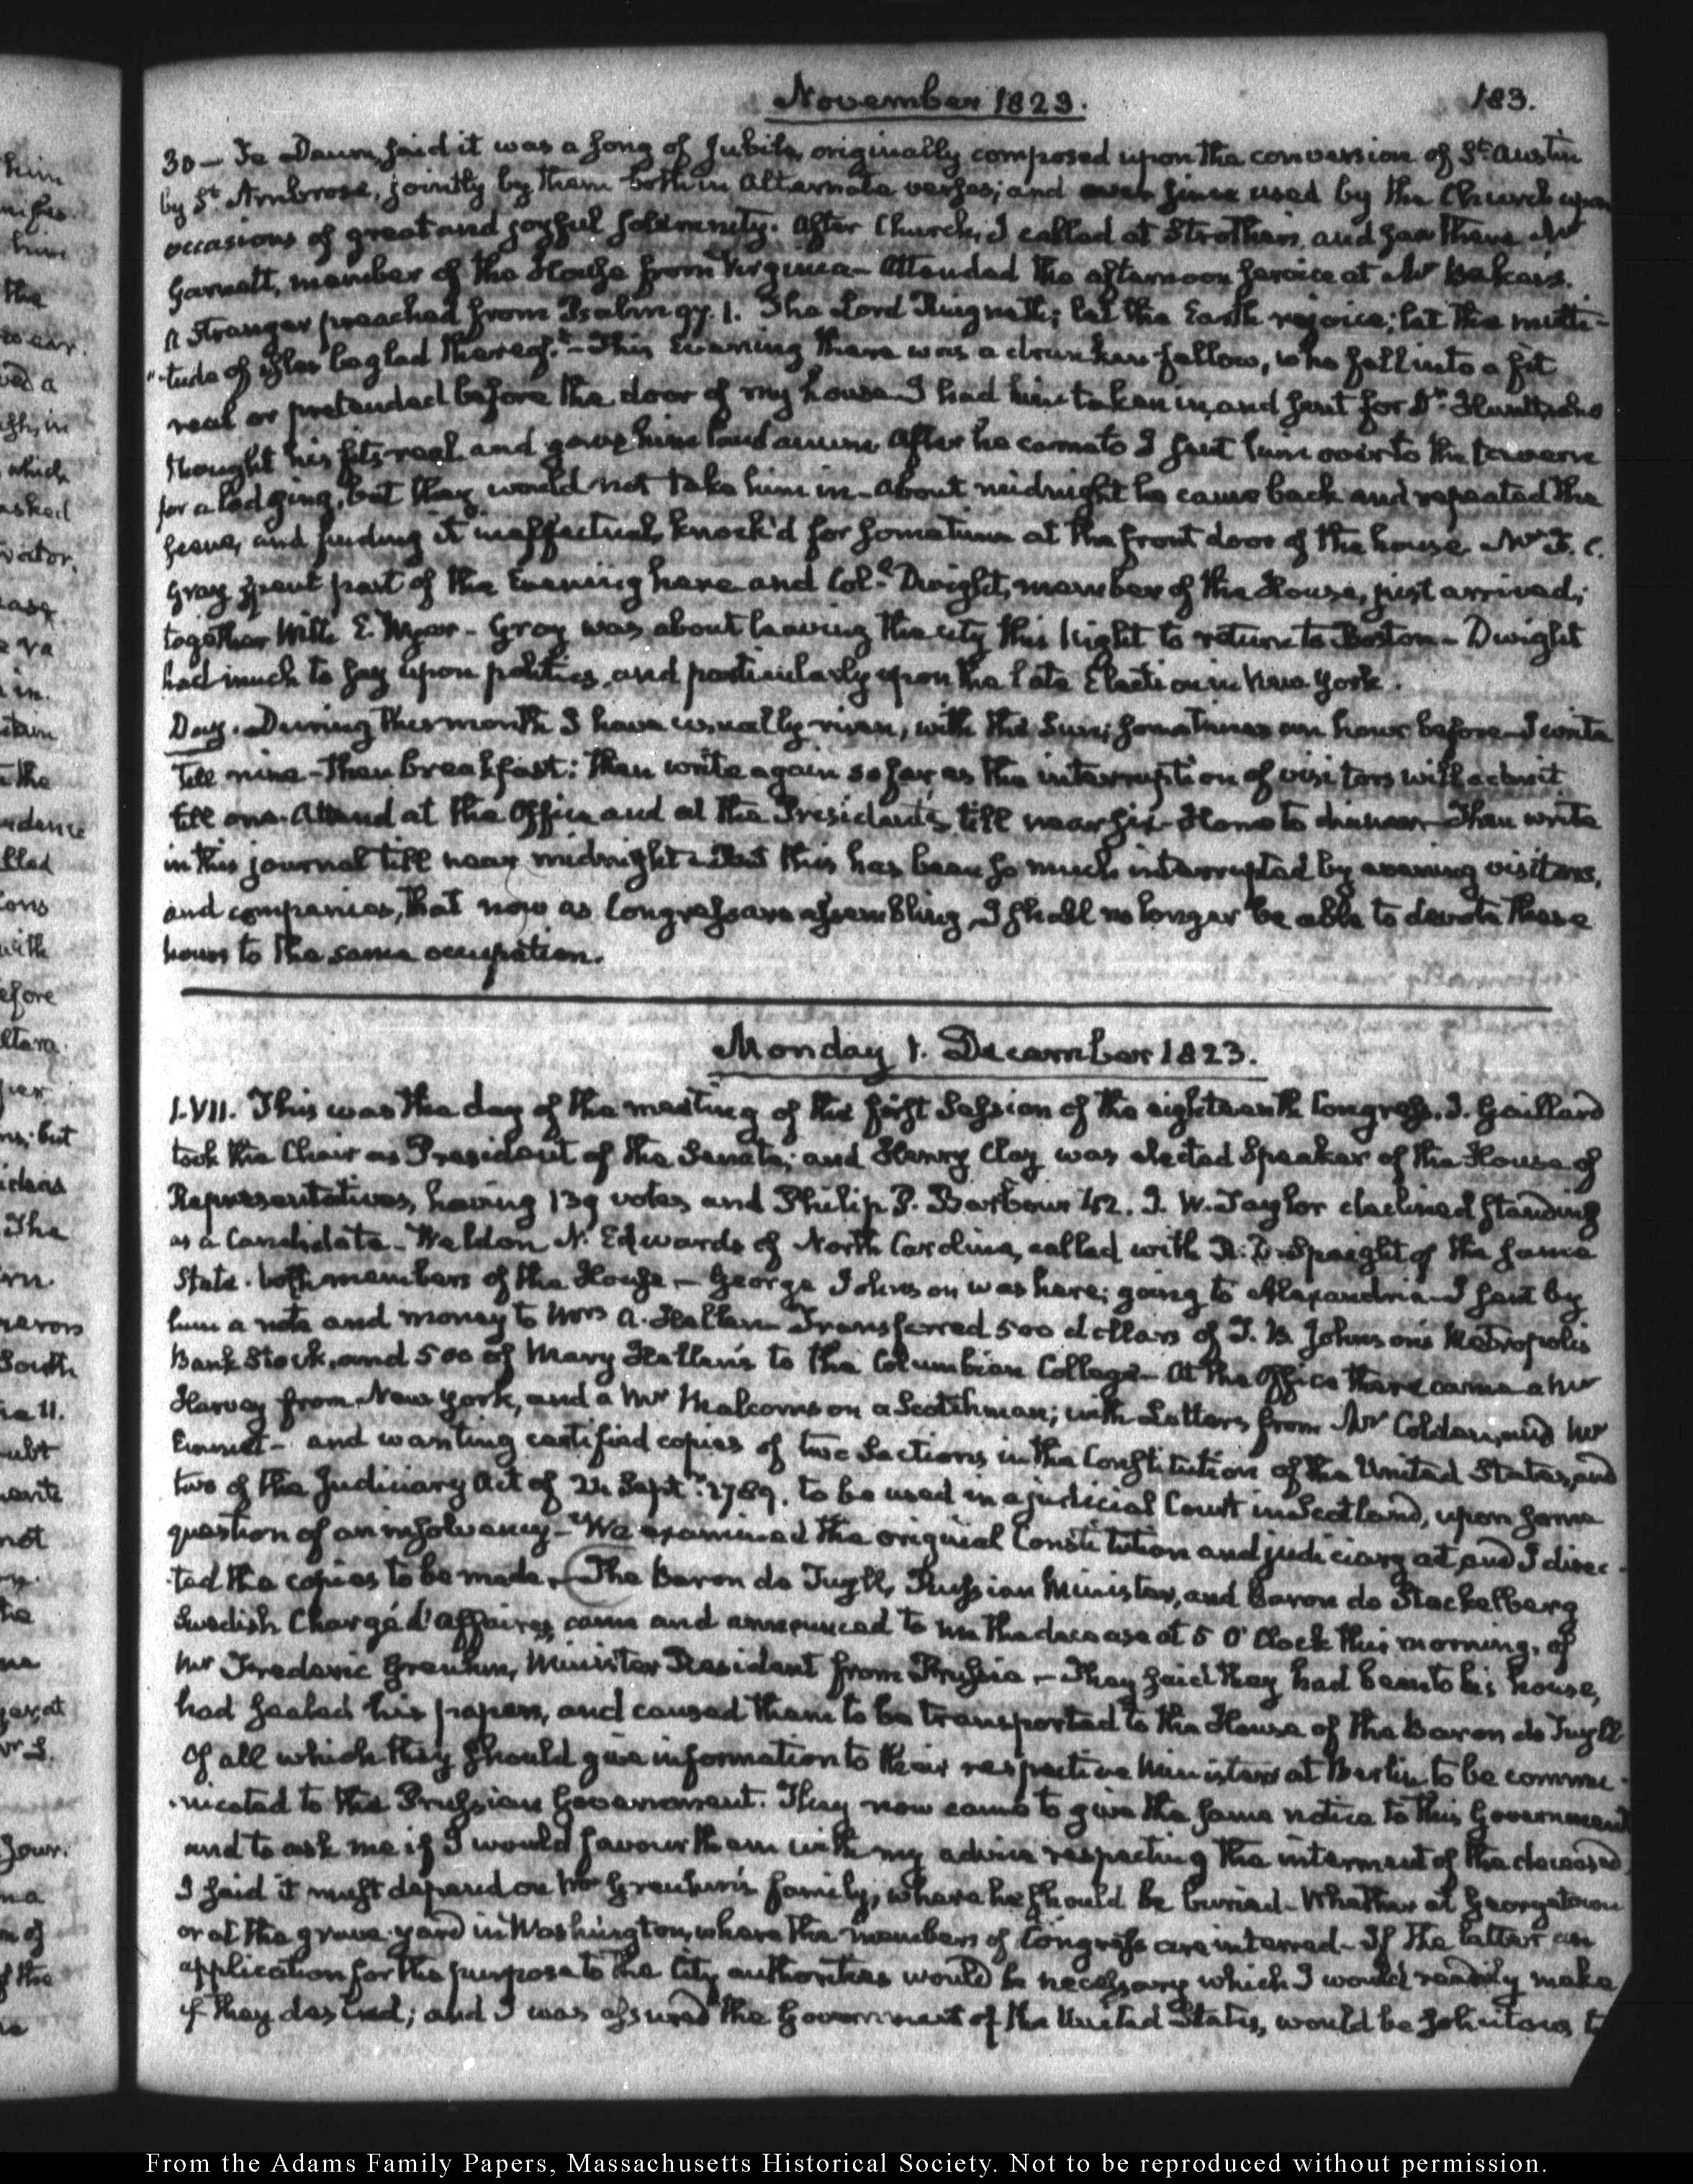 November 1823. 183.
30 — Te Deum, said it was a song of Jubile, originally composed upon the conversion of St. Austin
by St. Ambrose, jointly by them both in alternate verses; and ever since used by the Church upon
occasions of great and joyful solemnity. After Church, I called at Strother's and saw there Mr
Garnett, member of the House from Virginia — Attended the afternoon service at Mr Baker's.
A Stranger preached from Psalm 97. 1. The Lord Reigneth; let the Earth rejoice; let the multi-
"tude of isles be glad thereof." — This Evening there was a drunken fellow, who fell into a fit
real or pretended before the door of my house I had him taken in, and sent for Dr. Huntt, who
thought his fits real and gave him laudanum. After he came to I sent him over to the tavern
for a lodging, but they would not take him in — About midnight he came back and repeated the
scene, and finding it ineffectual, knock'd for sometime at the front door of the house. Mr F. C.
Gray spent part of the Evening here and Coll. Dwight, member of the House, just arrived;
together with E. Wyer — Gray was about leaving the city this Night to return to Boston — Dwight
had much to say upon politics, and particularly upon the late Election in New York.
Day. During this month I have usually risen, with the Sun; sometimes an hour before — I write
till nine — then breakfast: then write again so far as the interruption of visitors will admit
till one. Attend at the Office and at the President's till near six — Home to dinner — Then write
in this journal till near midnight — But this has been so much interrupted by evening visitors,
and companies, that now as Congress are assembling, I shall no longer be able to devote these
hours to the same occupation.
Monday 1. December 1823.
I. VII. This was the day of the meeting of the first Session of the eighteenth Congress. J. Gaillard
took the Chair as President of the Senate; and Henry Clay was elected Speaker of the House of
Representatives, having 139 votes and Philip P. Barbour 42. J. W. Taylor declined standing
as a Candidate — Weldon N. Edwards of North Carolina, called with R. D. Spaight of the same
State. both members of the House — George Johnson was here; going to Alexandria — I sent by
him a note and money to Mrs A. Hellen — Transferred 500 dollars of T. B. Johnson's Metropolis
Bank Stock, and 500 of Mary Hellen's to the Columbian College — At the Office there came a Mr
Harvey from New York, and a Mr Malcomson a Scotchman; with Letters from Mr Colden, and Mr
Emmet — and wanting certified copies of two Sections in the Constitution of the United States, and
two of the Judiciary Act of 24 Septr. 1789. to be used in a judicial Court in Scotland, upon some
question of an insolvency — We examined the original Constitution and judiciary act, and I direc-
-ted the copies to be made — The Baron de Tuyll, Russian Minister, and Baron de Stackelberg
Swedish Chargé d'affaires, came and announced to me the decease at 5 O'Clock this morning, of
Mr Frederic Greuhm, Minister Resident from Prussia — They said they had been to his house,
had sealed his papers, and caused them to be transported to the House of the Baron de Tuyll
Of all which they should give information to their respective Ministers at Berlin to be commu-
-nicated to the Prussian Government. They now came to give the same notice to this Government
and to ask me if I would favour them with my advice respecting the interment of the deceased
I said it must depend on Mr Greuhm's family, where he should be buried — Whether at Georgetown
or at the grave-yard in Washington, where the members of Congress are interred — If the latter an
application for the purpose to the City authorities would be necessary which I would readily make
if they desired; and I was assured the Government of the United States, would be solicitous to
From the Adams Family Papers, Massachusetts Historical Society. Not to be reproduced without permission.